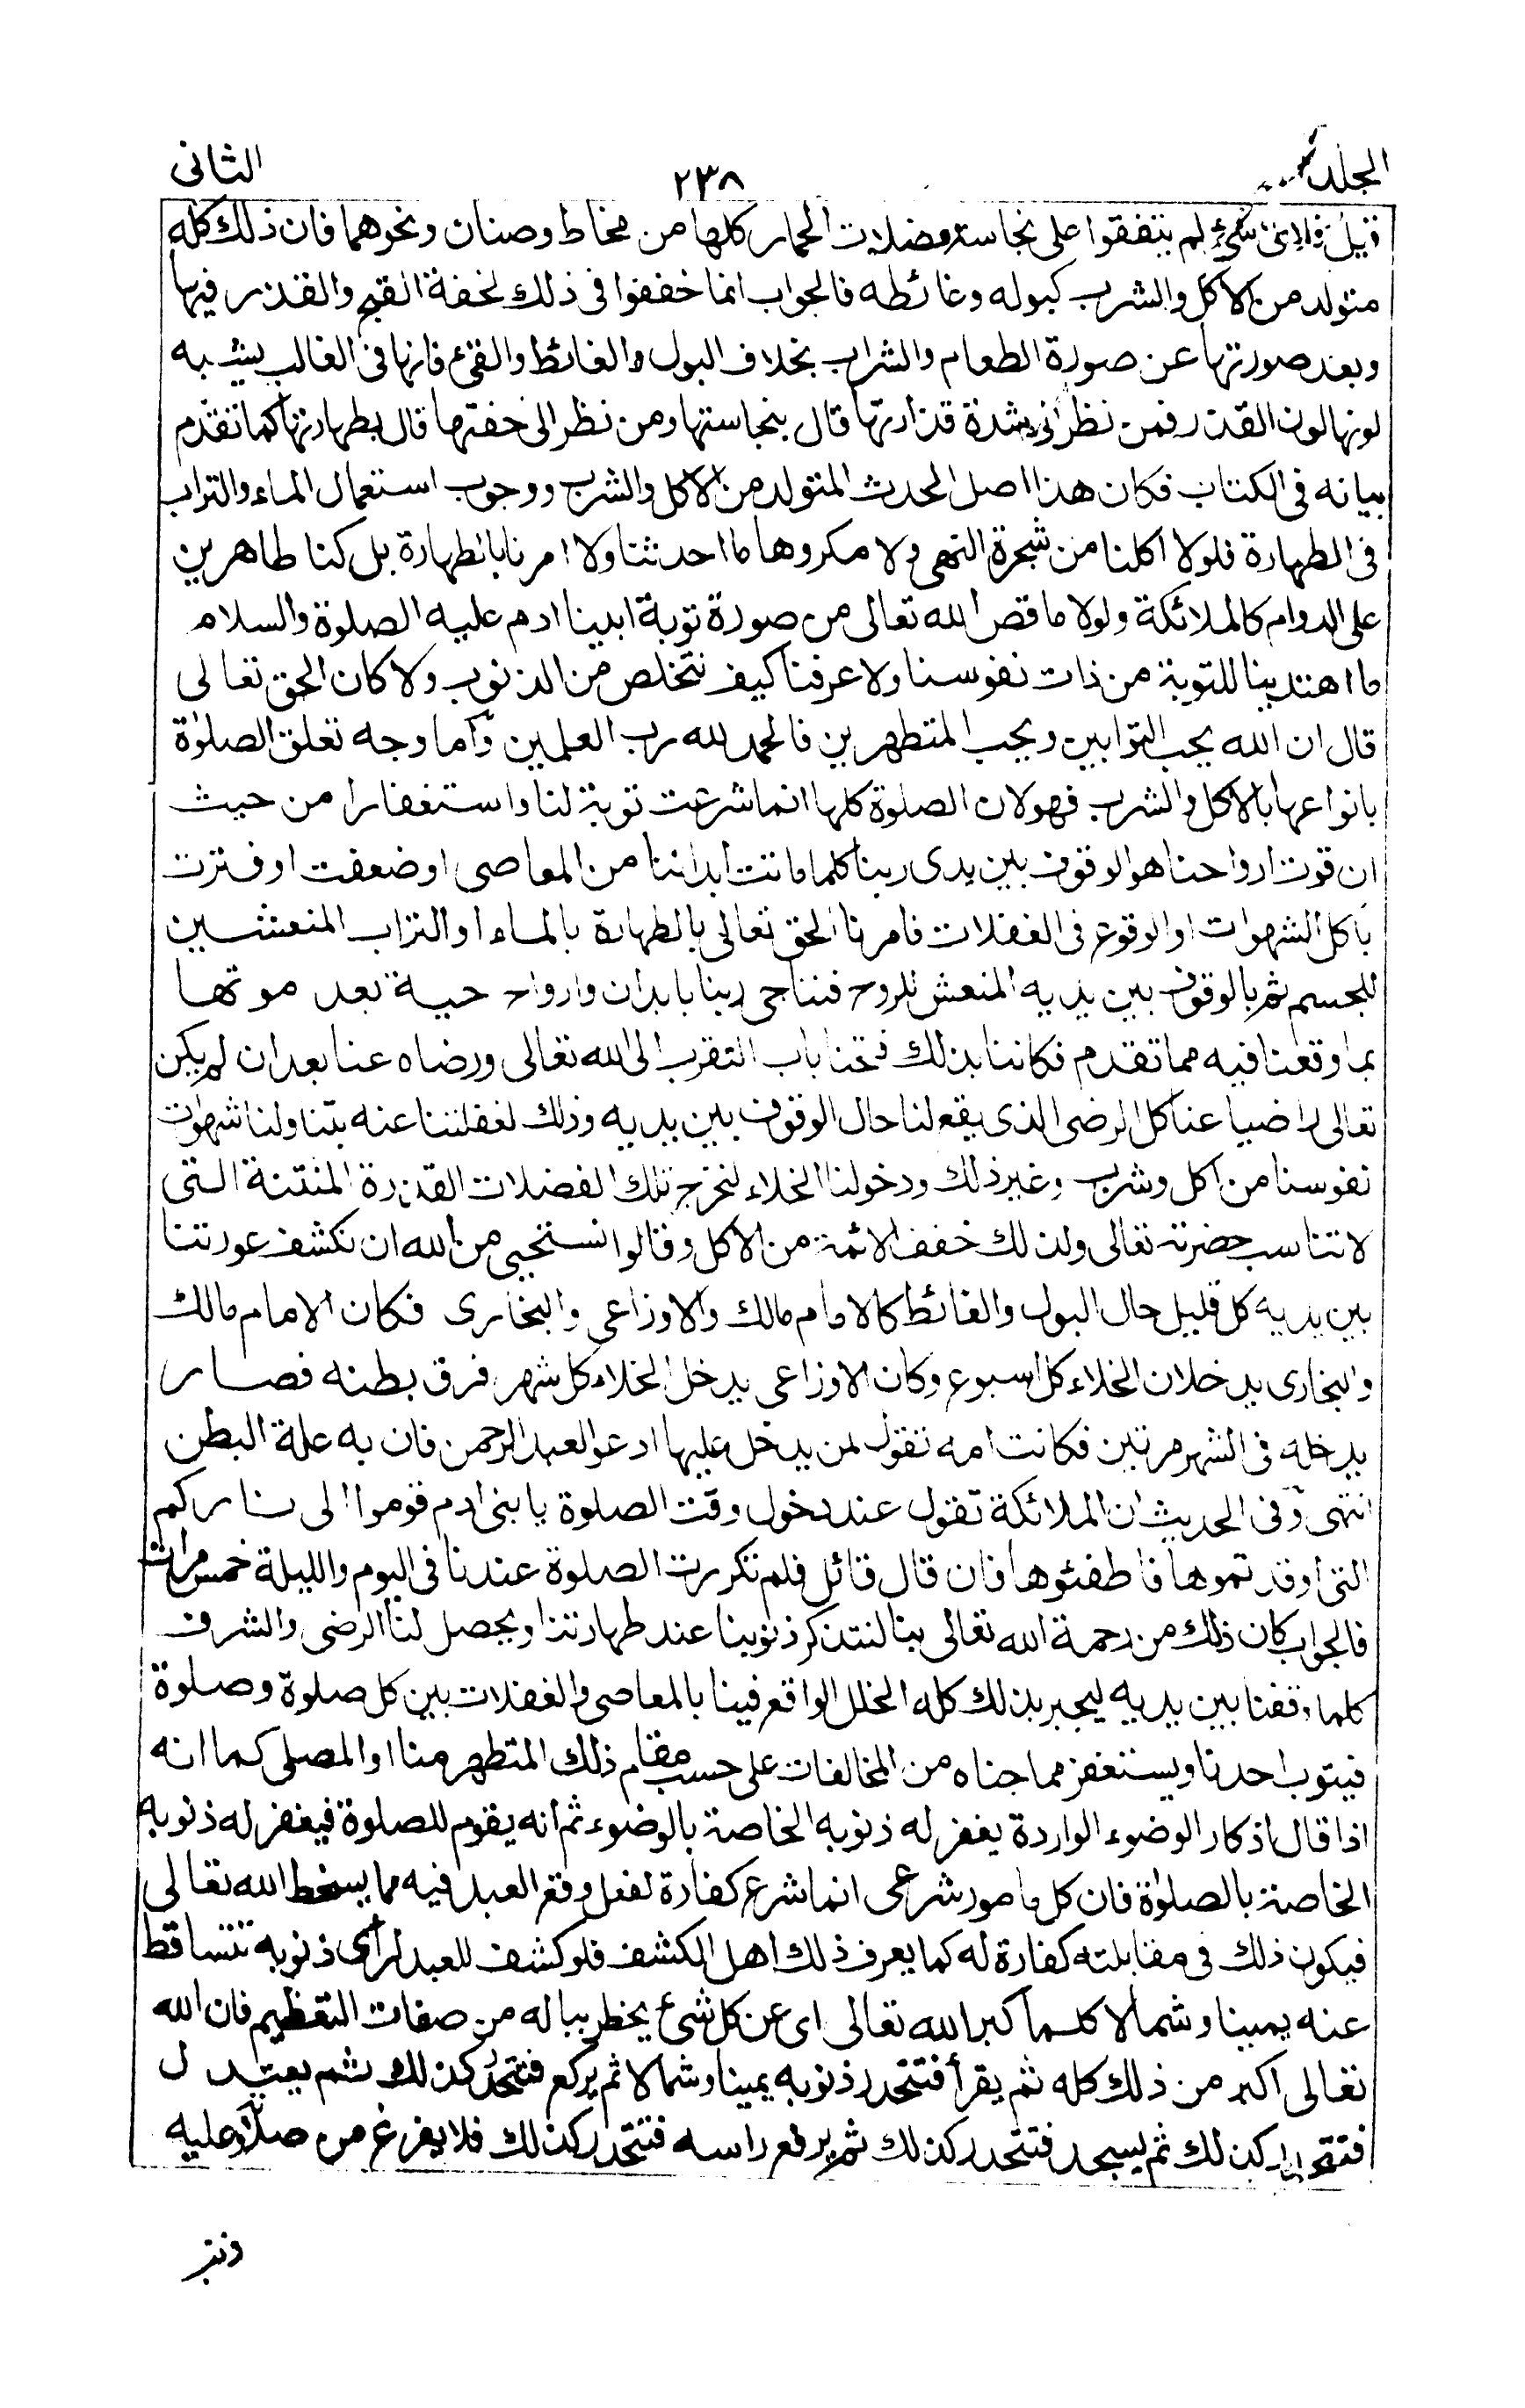 المجلد
٢٣٨
الثانى
قيل فلاى شئ لم يتفقوا على نجاسة فضلات الحمار كلها من مخاط وصنان ونحوهما فان ذلك كله
متولد من الاكل والشرب كبوله وغائطه فالجواب انما خففوا فى ذلك لخفة القبح والقذر فيها
وبعد صورتها عن صورة الطعام والشراب بخلاف البول والغائط والقئ فانها فى الغالب يشبه
لونها لون القذر فمن نظر الى شدة قذارتها قال بنجاستها ومن نظر الى خفتها قال بطهارتها كما تقدم
بيانه فى الكتاب فكان هذا اصل الحدث المتولد من الاكل والشرب ووجوب استعمال الماء والتراب
فى الطهارة فلولا اكلنا من شجرة النهى ولا مكروها ما احدثنا ولا امرنا بالطهارة بل كنا طاهرين
على الدوام كالملائكة ولولا ما قص الله تعالى من صورة توبة ابينا ادم عليه الصلوة والسلام
ما اهتدينا للتوبة من ذات نفوسنا ولا عرفنا كيف نتخلص من الذنوب ولا كان الحق تعالى
قال ان الله يحب التوابين ويحب المتطهرين فالحمد لله رب العلمين وآما وجه تعلق الصلوٰة
بانواعها بالاكل والشرب فهو لان الصلوة كلها انما شرعت توبة لنا واستغفارا من حيث
ان قوت ارواحنا هو الوقوف بين يدى ربنا كلما ماتت ابداننا من المعاصى او ضعفت او فترت
باكل الشهوات او الوقوع فى الغفلات فامرنا الحق تعالى بالطهارة بالماء او التراب المنعشين
للجسم ثم بالوقوف بين يديه المنعش للروح فنناجى ربنا بابدان وارواح حية بعد موتها
بما وقعنا فيه مما تقدم فكاننا بذلك فتحنا باب التقرب الى الله تعالى ورضاه عنا بعد ان لم يكن
تعالى راضيا عنا كل الرضى الذى يقع لنا حال الوقوف بين يديه وذلك لغفلتنا عنه بتناولنا شهوات
نفوسنا من اكل وشرب وغير ذلك ودخولنا الخلاء لنخرج تلك الفضلات القذرة المنتنة التى
لا تناسب حضرته تعالى ولذلك خفف الائمة من الاكل وقالوا نستحيى من الله ان نكشف عورتنا
بين يديه كل قليل حال البول والغائط كالامام مالك والاوزاعى والبخارى فكان الامام مالك
والبخارى يدخلان الخلاء كل اسبوع وكان الاوزاعى يدخل الخلاء كل شهر فرق بطنه فصار
يدخله فى الشهر مرتين فكانت امه تقول لمن يدخل عليها ادعو لعبد الرحمن فان به علة البطن
انتهى وفى الحديث ان الملائكة تقول عند دخول وقت الصلوة يا بنى ادم قوموا الى ناركم
التى اوقدتموها فاطفئوها فان قال قائل فلم تكررت الصلوة عندنا فى اليوم والليلة خمس مرات
فالجواب كان ذلك من رحمة الله تعالى بنا لنتذكر ذنوبنا عند طهارتنا ويحصل لنا الرضى والشرف
كلما وقفنا بين يديه ليجبر بذلك كله الخلل الواقع فينا بالمعاصى والغفلات بين كل صلوة وصلوة
فيتوب احدنا ويستغفر مما جناه من المخالفات على حسب مقام ذلك المتطهر منا او المصلى كما انه
اذا قال اذكار الوضوء الواردة يغفر له ذنوبه الخاصة بالوضوء ثم انه يقوم للصلوة فيغفر له ذنوبه
الخاصة بالصلوٰة فان كل مامور شرعى انما شرع كفارة لفعل وقع العبد فيه مما يسخط الله تعالى
فيكون ذلك فى مقابلته كفارة له كما يعرف ذلك اهل الكشف فلو كشف للعبد لرأى ذنوبه تتساقط
عنه يمينا وشمالا كلما كبر الله تعالى اى عن كل شئ يخطر بباله من صفات التعظيم فان الله
تعالى اكبر من ذلك كله ثم يقرأ فتتحدر ذنوبه يمينا وشمالا ثم يركع فتتحدر كذلك ثم يعتدل
فتتحدر كذلك ثم يسجد فتتحدر كذلك ثم يرفع راسه فتتحدر كذلك فلا يفرغ من صلاته وعليه